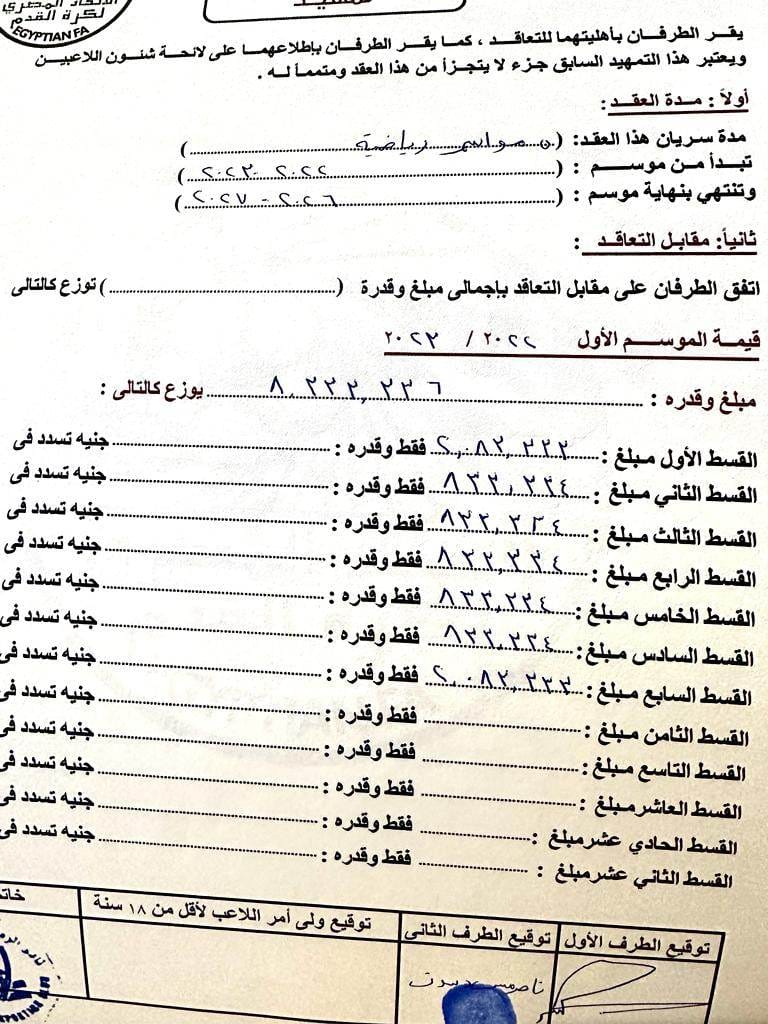 الاتحاد المصري
لكرة القدم
EGYPTIAN FA
يقر الطرفان بأهليتهما للتعاقد ، كما يقر الطرفان بإطلاعهما على لائحة شئون اللاعبين
ويعتبر هذا التمهيد السابق جزء لا يتجزأ من هذا العقد ومتمماً له .
أولاً : مدة العقد :
مدة سريان هذا العقد: (٥ مواسم رياضية)
تبدأ من موسم : (٢٠٢٢ - ٢٠٢٣)
وتنتهي بنهاية موسم : (٢٠٢٦ - ٢٠٢٧)
ثانياً: مقابل التعاقد :
اتفق الطرفان على مقابل التعاقد بإجمالى مبلغ وقدرة (..........) توزع كالتالى
قيمة الموسم الأول ٢٠٢٢ / ٢٠٢٣
مبلغ وقدره : ٨,٣٣٣,٣٣٦ يوزع كالتالى :
القسط الأول مبلغ : ٢,٠٨٣,٣٣٣ فقط وقدره : .......... جنيه تسدد فى
القسط الثاني مبلغ : ٨٣٣,٣٣٤ فقط وقدره : .......... جنيه تسدد فى
القسط الثالث مبلغ : ٨٣٣,٣٣٤ فقط وقدره : .......... جنيه تسدد فى
القسط الرابع مبلغ : ٨٣٣,٣٣٤ فقط وقدره : .......... جنيه تسدد فى
القسط الخامس مبلغ : ٨٣٣,٣٣٤ فقط وقدره : .......... جنيه تسدد فى
القسط السادس مبلغ : ٨٣٣,٣٣٤ فقط وقدره : .......... جنيه تسدد فى
القسط السابع مبلغ : ٢,٠٨٣,٣٣٣ فقط وقدره : .......... جنيه تسدد فى
القسط الثامن مبلغ : .......... فقط وقدره : .......... جنيه تسدد فى
القسط التاسع مبلغ : .......... فقط وقدره : .......... جنيه تسدد فى
القسط العاشر مبلغ : .......... فقط وقدره : .......... جنيه تسدد فى
القسط الحادي عشر مبلغ : .......... فقط وقدره : .......... جنيه تسدد فى
القسط الثاني عشر مبلغ : .......... فقط وقدره : .......... جنيه تسدد فى
توقيع الطرف الأول توقيع الطرف الثانى توقيع ولى أمر اللاعب لأقل من ١٨ سنة